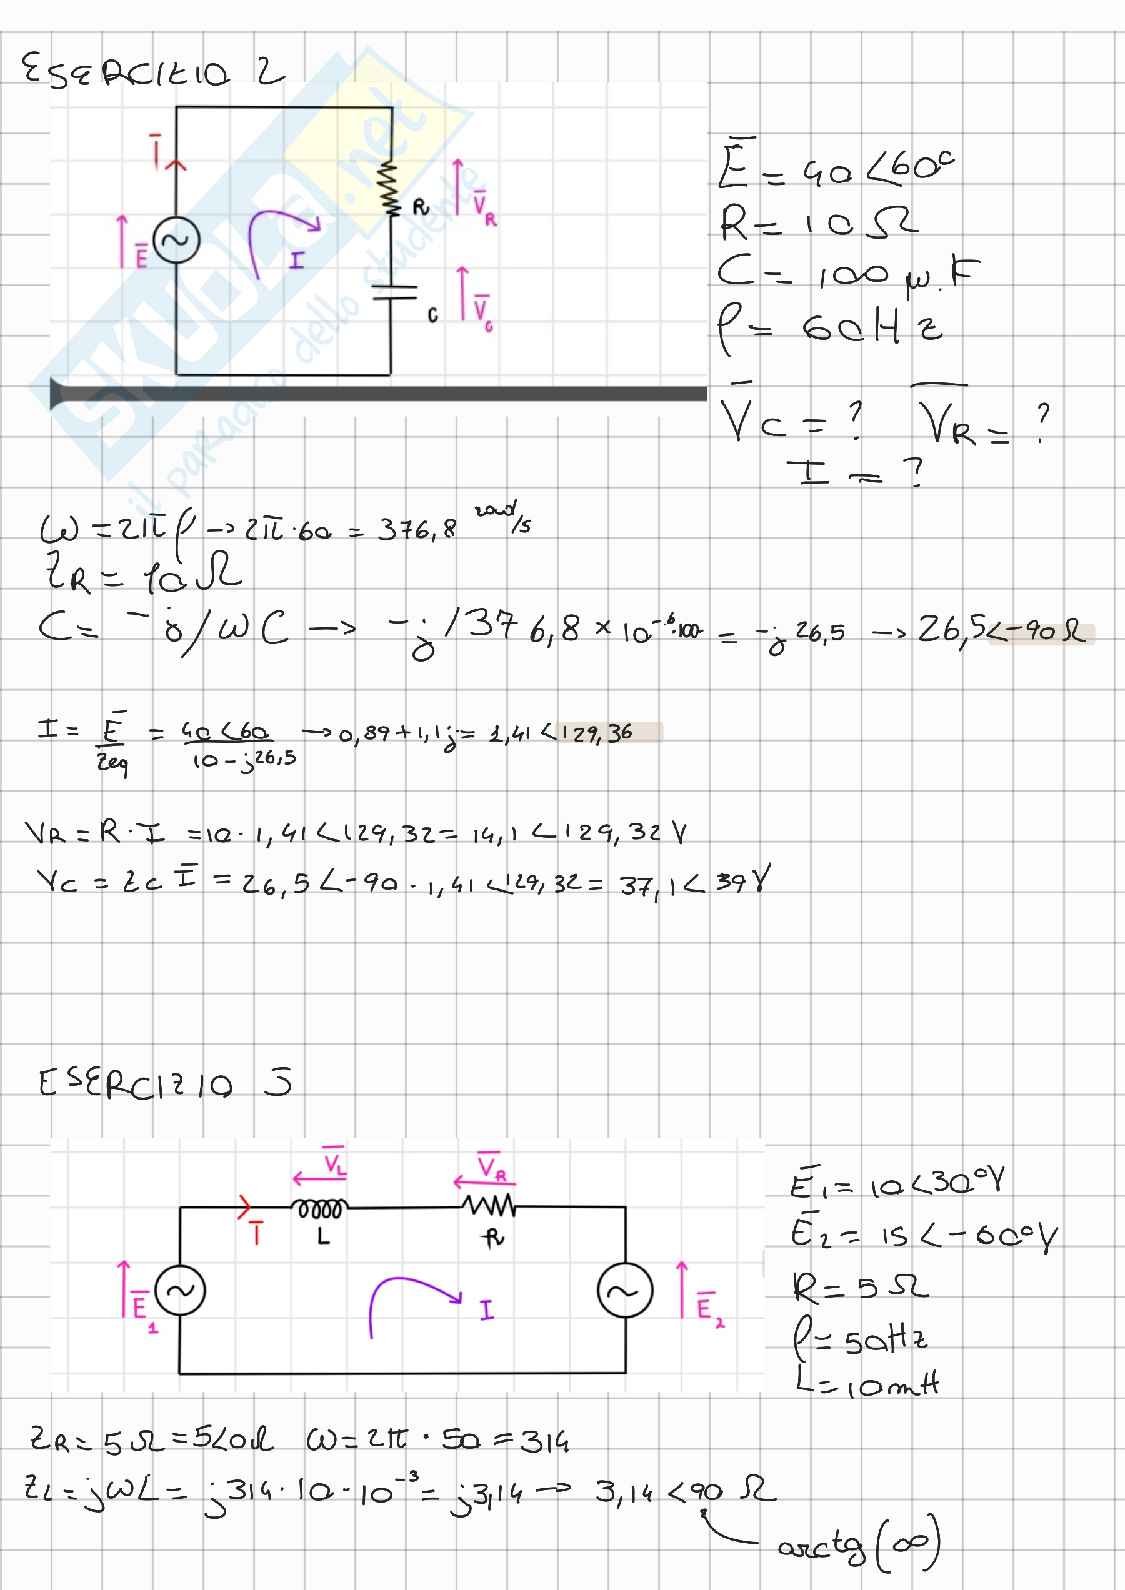 ESERCIZIO 2
Ī
Ē
I
R
V̄R
C
V̄c
SKUOLA.net
il paradiso dello studente
Ē = 40<60°
R = 10Ω
C = 100 μ.F
f = 60Hz
V̄c = ? V̄R = ?
I = ?
ω = 2πf -> 2π·60 = 376,8 rad/s
ZR = 10Ω
C = -j/ωC -> -j/376,8 × 10⁻⁶·100 = -j 26,5 -> 26,5<-90Ω
I = Ē/Zeq = 40<60/10-j26,5 -> 0,89+1,1j = 1,41<129,36
VR = R·I = 10·1,41<129,32 = 14,1<129,32V
Vc = Zc Ī = 26,5<-90·1,41<129,32 = 37,1<39V
ESERCIZIO 3
V̄L
V̄R
Ī
L
R
Ē1
I
Ē2
Ē1 = 10<30°V
Ē2 = 15<-60°V
R = 5Ω
f = 50Hz
L = 10mH
ZR = 5Ω = 5<0Ω ω = 2π·50 = 314
ZL = jωL = j314·10·10⁻³ = j3,14 -> 3,14<90 Ω
arctg(∞)